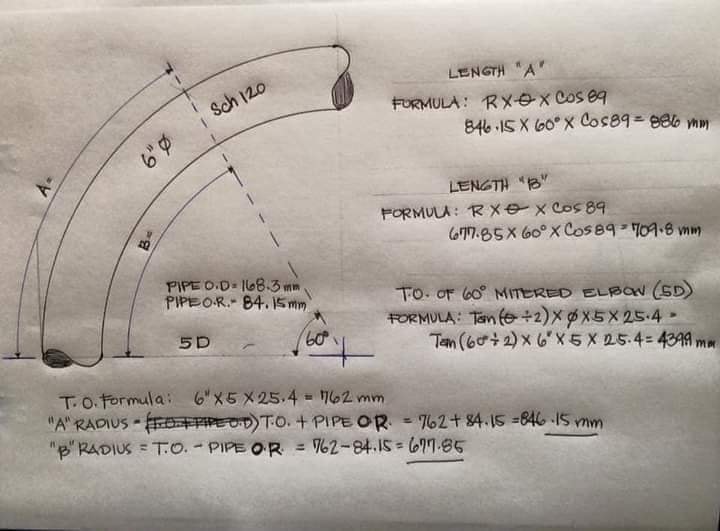 A=
6"Ø
Sch 120
B=
PIPE O.D= 168.3 mm
PIPE O.R.= 84.15 mm
5D
60°
LENGTH "A"
FORMULA: R X θ X COS 89
846.15 X 60° X Cos89 = 886 mm
LENGTH "B"
FORMULA: R X θ X COS 89
677.85 X 60° X Cos89 = 709.8 mm
T.O. OF 60° MITERED ELBOW (5D)
FORMULA: Tan (θ ÷ 2) X Ø X 5 X 25.4 =
Tan (60° ÷ 2) X 6" X 5 X 25.4 = 4399 mm
T.O. Formula: 6" X 5 X 25.4 = 762 mm
"A" RADIUS = (T.O. + PIPE O.D) T.O. + PIPE O.R. = 762 + 84.15 = 846.15 mm
"B" RADIUS = T.O. - PIPE O.R. = 762 - 84.15 = 677.85